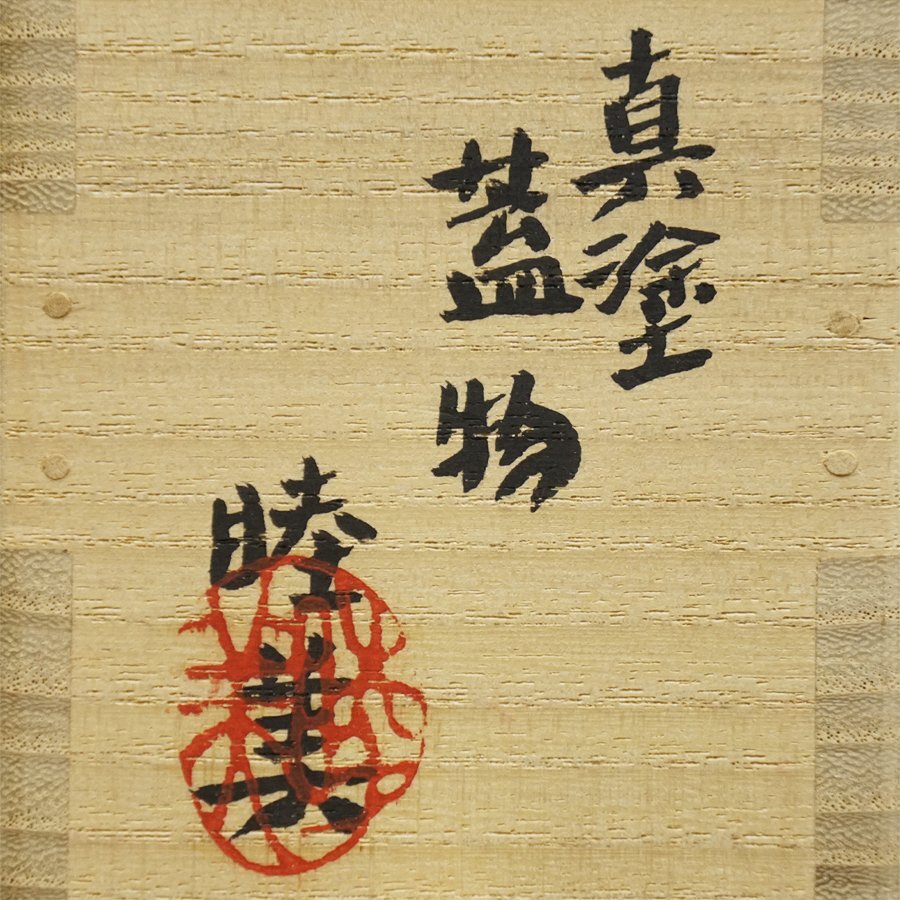 真塗
蓋物
睦美